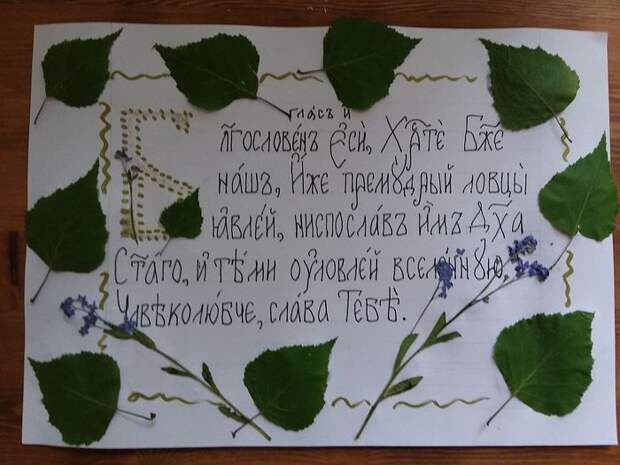 гла́съ и҃
Бл҃гослове́нъ Є҆сѝ, Хрⷭ҇тѐ Бж҃е
на́шъ, И҆́же премꙋ́дрый ловцы̀
ꙗ҆вле́й, ниспосла́въ и҆̀мъ Дх҃а
Ст҃а́го, и҆ тѣ́ми оу҆ловле́й вселе́ннꙋю,
Чл҃вѣколю́бче, сла́ва Тебѣ̀.